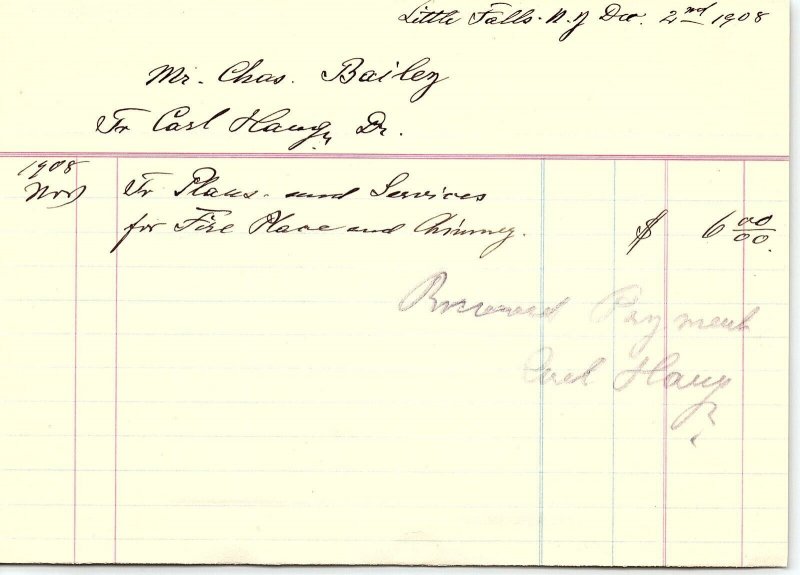 Little Falls. N.Y Dec. 2nd 1908
Mr. Chas. Bailey
To Carl Haug, Dr.
1908
Nov To Plans and Services
for Fire Place and Chimney. $ 6 00/00.
Received Payment
Carl Haug